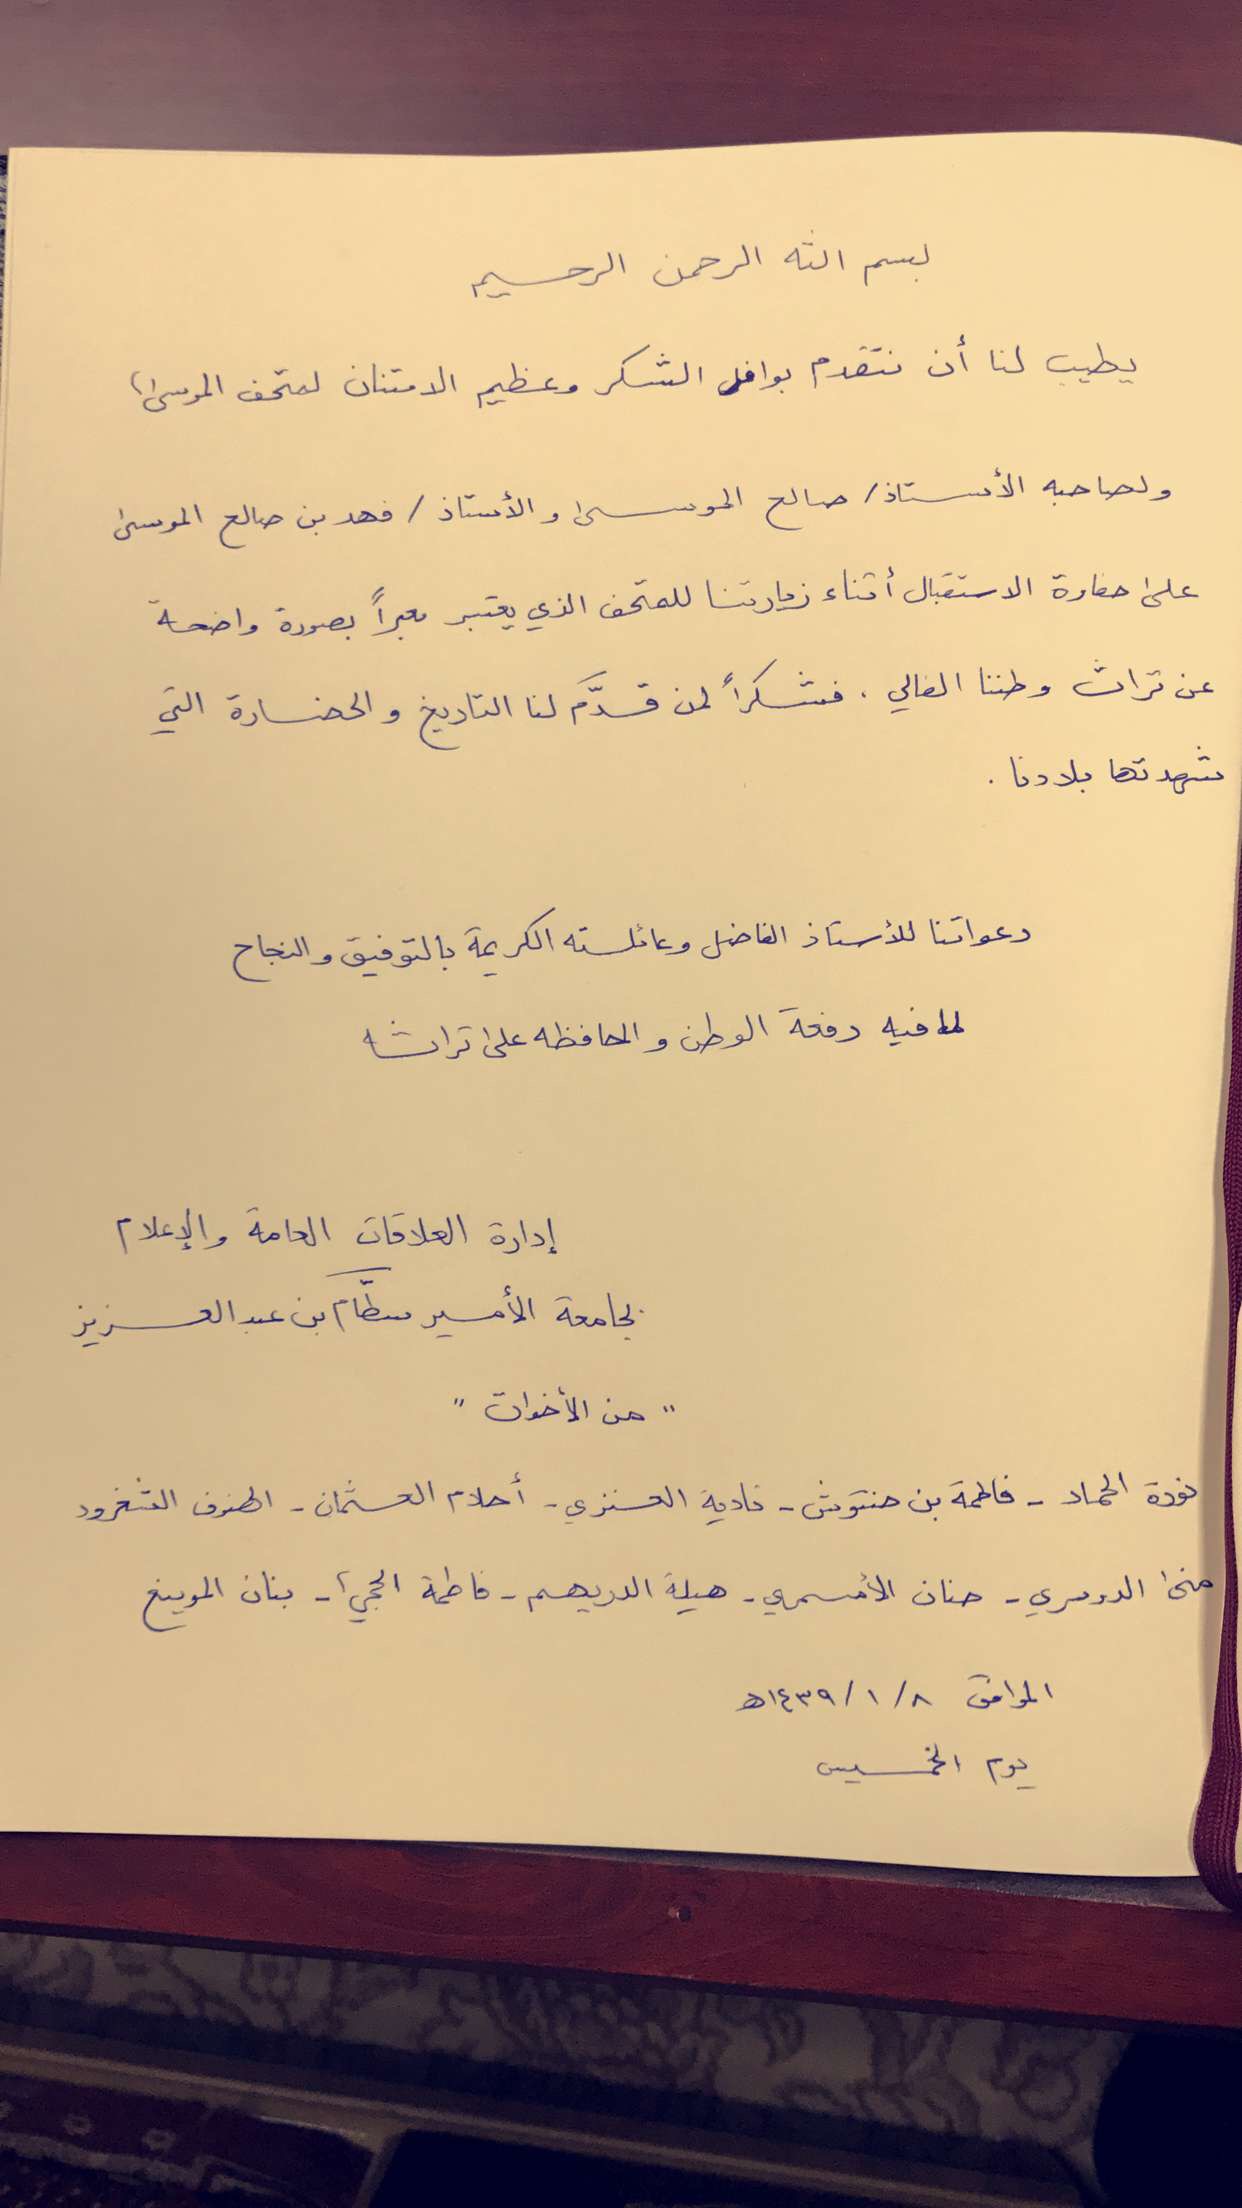 بسم الله الرحمن الرحيم
يطيب لنا أن نتقدم بوافر الشكر وعظيم الامتنان لمتحف الموسى،
ولصاحبه الأستاذ/ صالح الموسى والأستاذ/ فهد بن صالح الموسى
على حفاوة الاستقبال أثناء زيارتنا للمتحف الذي يعتبر معبراً بصورة واضحة
عن تراث وطننا الغالي . فشكراً لمن قدَّم لنا التاريخ والحضارة التي
شهدتها بلادنا .
دعواتنا للأستاذ الفاضل وعائلته الكريمة بالتوفيق والنجاح
لما فيه رفعة الوطن والمحافظه على تراثه
إدارة العلاقات العامة والإعلام
بجامعة الأمير سطَّام بن عبدالعزيز
" من الأخوات "
نورة الحماد - فاطمة بن حنتوش - نادية العنزي - أحلام العثمان - الشغرود
منى الدوسري - حنان الأسمري - هيلة الدريهم - فاطمة الحجي - بنان الموينع
الموافق ٨/ ١/ ١٤٣٩هـ
يوم الخميس